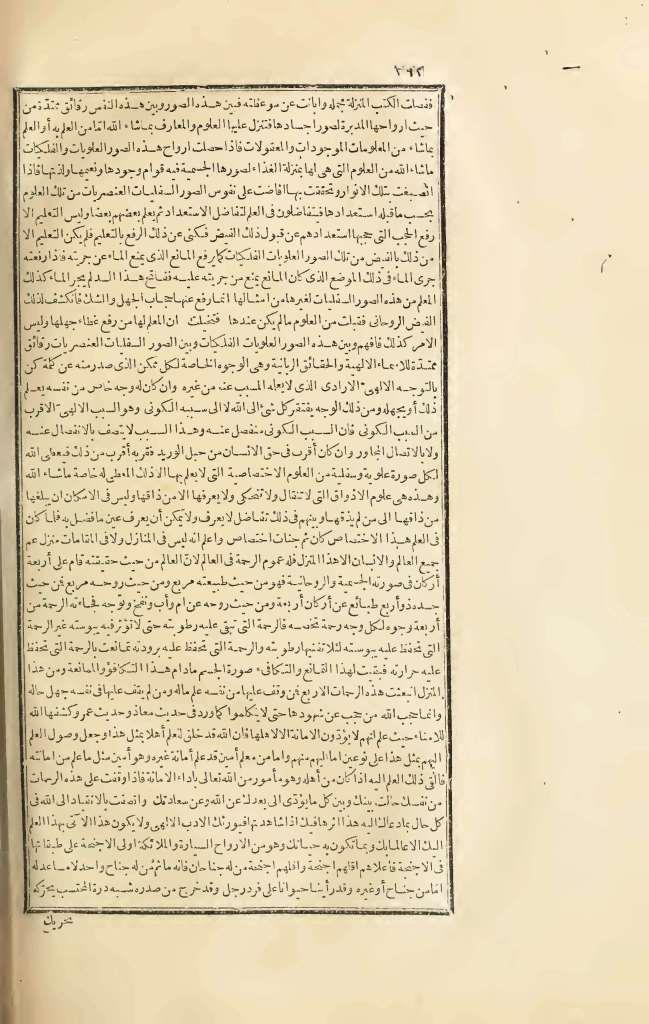 ٣٦٢
ففصلت الكتب المنزلة مجمله وابانت عن سر عفلته فبين هذه الصور وبين هذه النفس رقائق ممتدة من
حيث ارواحها المدبرة لصور اجسادها فتنزل عليها العلوم والمعارف بما شاء الله امّا من العلم به أو العلم
بما شاء من المعلومات الموجودات والمعقولات فاذا حصلت ارواح هذه الصور العلويات والفلكيات
ما شاء الله من العلوم التي هي لها بمنزلة الغذاء لصورها الجسمية فبه قوام وجودها ونعيمها ولذتها فاذا
انصبغت بتلك الانوار وتحققت بها افاضت على نفوس الصور السفليات العنصريات من تلك العلوم
بحسب ما قبله استعدادها فيتفاضلون في العلم لتفاضل الاستعداد ثم يعلم بعضهم بعضا وليس التعليم الا
رفع الحجب التي حجبها استعدادهم عن قبول ذلك الفيض فكنى عن ذلك الرفع بالتعليم فلم يكن التعليم الا
من ذلك بالفيض من تلك الصور العلويات الفلكيات كما يرفع المانع الذي يمنع الماء عن جريته فاذا رفعته
جرى الماء في ذلك الموضع الذي كان المانع يمنع من جريته عليه ففاتح هذا السد لم يجر الماء كذلك
المعلم من هذه الصور السفليات لغيرها من امثالها انما رفع عنها حجاب الجهل والشك فانكشف لذلك
الفيض الروحاني فقبلت من العلوم ما لم يكن عندها فتخيلت ان المعلم لها من رفع غطاء جهلها وليس
الامر كذلك فافهم وبين هذه الصور العلويات الفلكيات وبين الصور السفليات العنصريات رقائق
ممتدة للاسماء الالهية والحقائق الربانية وهي الوجوه الخاصة لكل ممكن الذي صدر منه عن كلمة كن
بالتوجه الالهي الارادي الذي لا يعلمه المسبب عنه من غيره وان كان له وجه خاص من نفسه يعلم
ذلك أو يجهله ومن ذلك الوجه يفتقر كل شئ الى الله لا الى سببه الكوني وهو السبب الالهي الاقرب
من السبب الكوني فان السبب الكوني منفصل عنه وهذا السبب لا يتصف بالانفصال عنه
ولا بالاتصال المجاور وان كان أقرب في حق الانسان من حبل الوريد فقربه أقرب من ذلك فيعطى الله
لكل صورة علوية وسفلية من العلوم الاختصاصية التي لا يعلم بها الا ذلك المعطى له خاصة ما شاء الله
وهذه هي علوم الاذواق التي لا تنقال ولا تحكى ولا يعرفها الا من ذاقها وليس في الامكان ان يبلغها
من ذاقها الى من لم يذقها وبينهم في ذلك تفاضل لا يعرف ولا يمكن أن يعرف عين ما فضل به فلما كان
في العلم هذا الاختصاص كان ثم جنات اختصاص واعلم انه ليس في المنازل ولا في المقامات منزل عم
جميع العالم والانسان الا هذا المنزل فله عموم الرحمة في العالم لانّ العالم من حيث حقيقته قام على أربعة
أركان في صورته الجسمية والروحانية فهو من حيث طبيعته مربع ومن حيث روحه مربع فمن حيث
جسده ذو أربع طبائع عن أركان أربعة ومن حيث روحه عن ام وأب ونفخ وتوجه فجاءته الرحمة من
أربعة وجوه لكل وجه رحمة تخصه فالرحمة التي تبقى عليه رطوبته حتى لا تؤثر فيه يبوسته غير الرحمة
التي تحفظ عليه يبوسته لئلا تفنيها رطوبته والرحمة التي تحفظ عليه برودته تمانعت بالرحمة التي تحفظ
عليه حرارته فبقيت لهذا التمانع والتكافىء صورة الجسم مادام هذا التكافؤ والممانعة ومن هذا
المنزل انبعثت هذه الرحمات الاربع فمن وقف عليها من نفسه علم ماله ومن لم يقف عليها في نفسه جهل حاله
وانما حجب الله من حجب عن شهودها حتى لا يتكلموا كما ورد في حديث معاذ وحديث عمر وكشفها الله
للامناء حيث علم انهم لا يؤدّون الامانة الا لاهلها فان الله قد خلق للعلم أهلا بمثل هذا وجعل وصول العلم
اليهم بمثل هذا على نوعين اما اليهم منهم واما من معلم أمين قد علم أمانة غيره وهو أمين مثل ما علم من امانته
فالتى ذلك العلم اليه اذا كان من أهله وهو مأمور من الله تعالى باداء الامانة فاذا وقفت على هذه الرحمات
من نفسك حالت بينك وبين كل ما يؤدّى الى بعدك عن الله وعن سعادتك واتصفت بالانقياد الى الله في
كل حال بما دعاك اليه هذا اثرها فيك اذا شاهدتها فيورثك الادب الالهي ولا يكون هذا الا آتى بهذا العلم
اليك الا عالما بك وبما تكون به حياتك وهو من الارواح السيارة والملائكة اولى الاجنحة على طبقاتها
في الاجنحة فأعلاهم اقلهم اجنحة واقلهم اجنحة من له جناحان فانه ما ثم من له جناح واحد لا مساعد له
امّا من جناح أو غيره وقد رأينا حيوانا على فرد رجل وقد خرج من صدره شبه درة المحتسب يحرّكه
تحريك